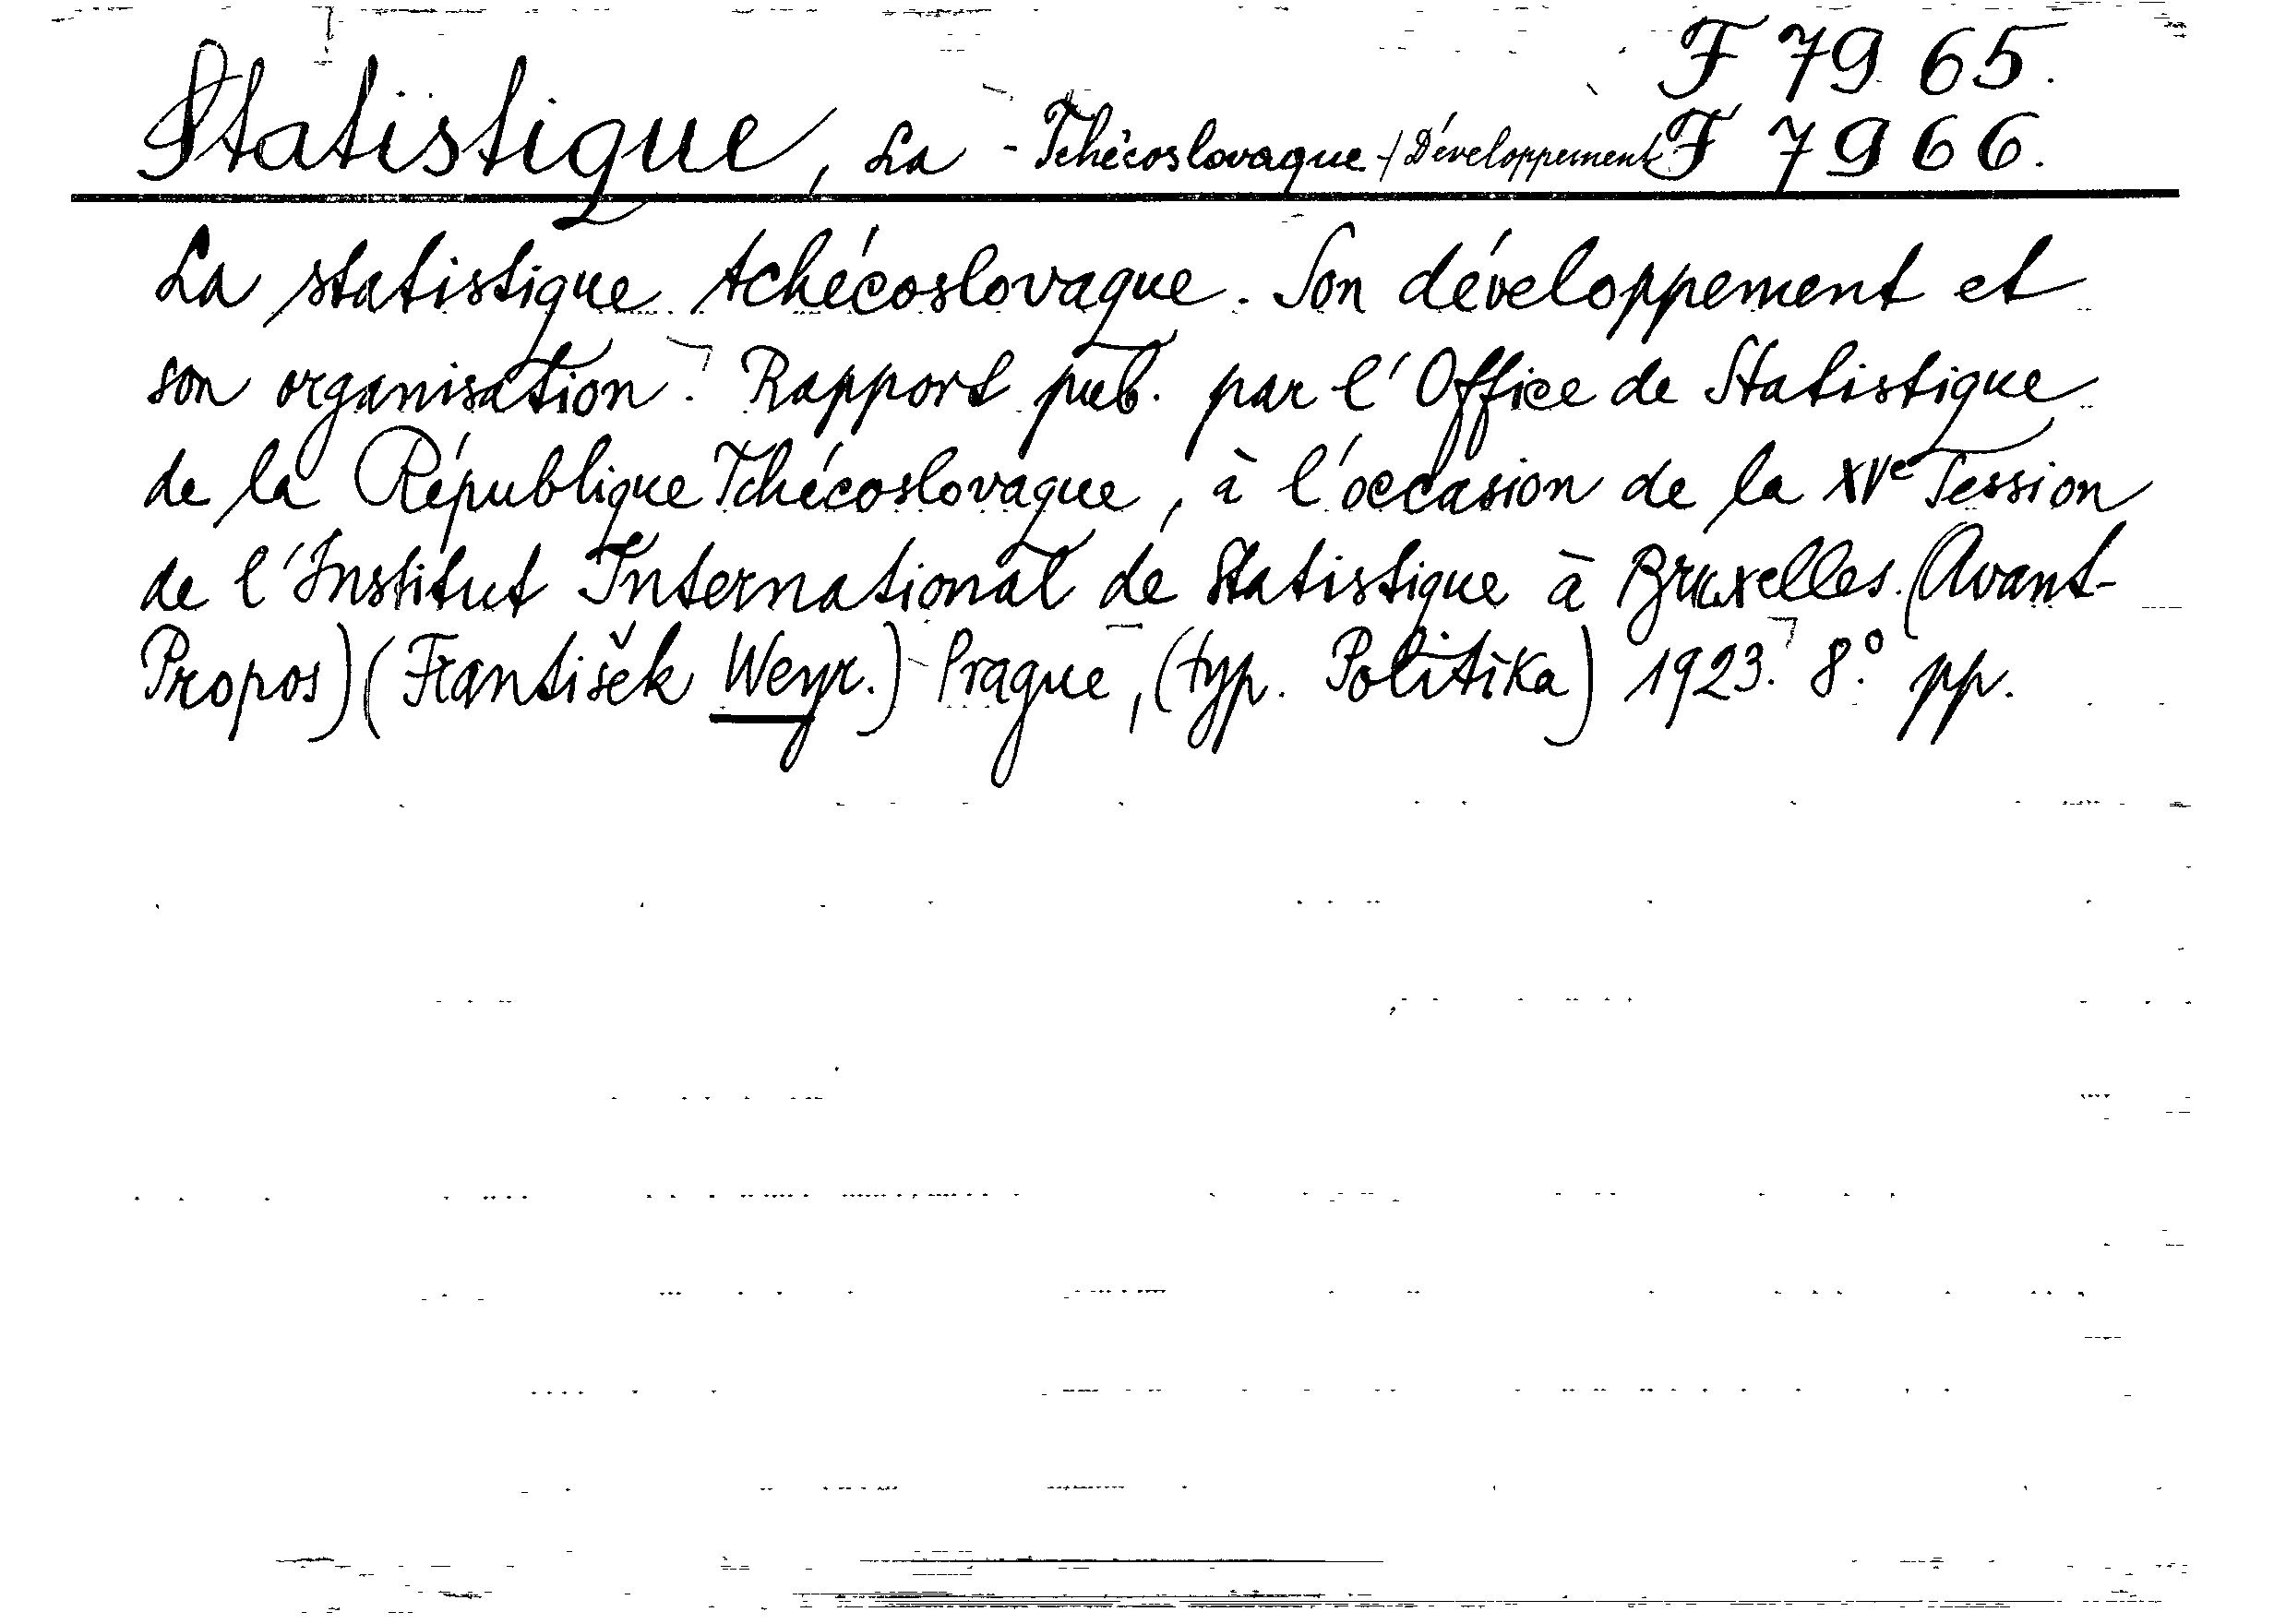 F 7965.
Statistique, La - Tchécoslovaque - / Développement F 7966.
La statistique tchécoslovaque. Son développement et
son organisation. Rapport pub. par l'Office de Statistique
de la République Tchécoslovaque, à l'occasion de la XVe Session
de l'Institut International de Statistique à Bruxelles. (Avant-
Propos) (František Weyr.) Prague, (typ. Politika) 1923. 8.° pp.